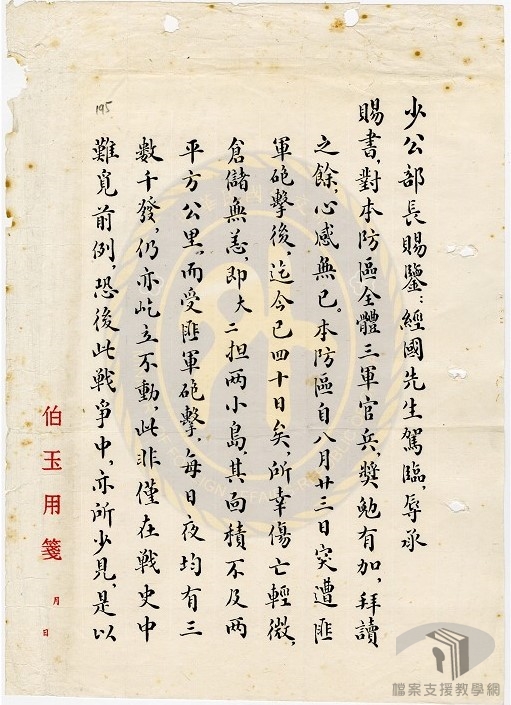 195
少公部長賜鑒：經國先生駕臨，辱承
賜書，對本防區全體三軍官兵，獎勉有加，拜讀
之餘，心感無已。本防區自八月廿三日突遭匪
軍砲擊後，迄今已四十日矣，所幸傷亡輕微，
倉儲無恙，即大二担两小島，其面積不及两
平方公里，而受匪軍砲擊，每日夜均有三
數千發，仍亦屹立不動，此非僅在戰史中
難覓前例，恐後此戰爭中，亦所少見，是以
伯玉用箋
月 日
檔案支援教學網